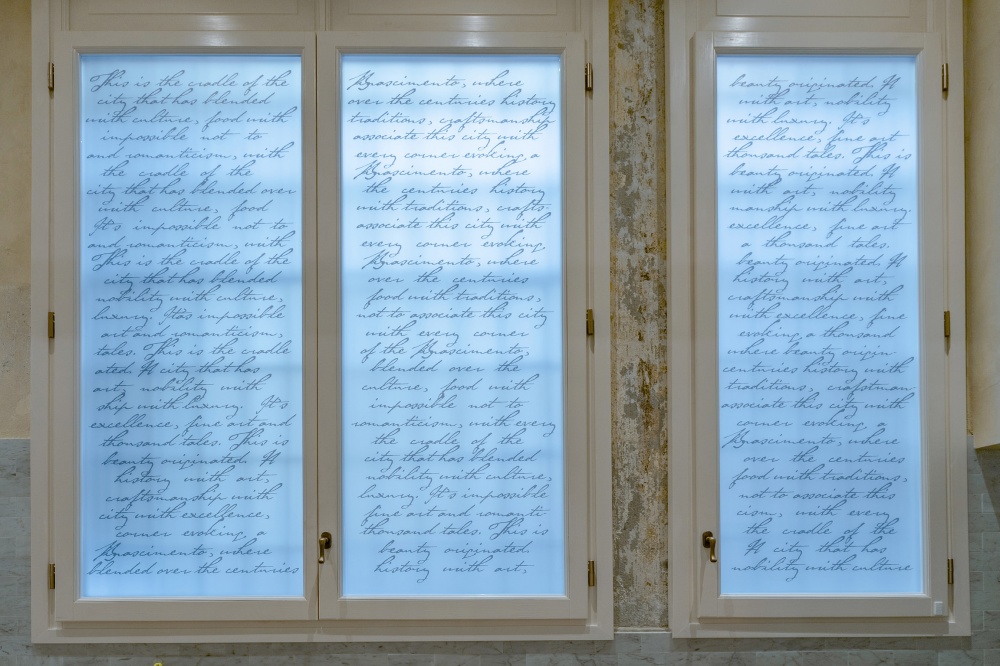 This is the cradle of the
city that has blended
with culture, food with
impossible not to
and romanticism, with
the cradle of the
city that has blended over
with culture, food
It's impossible not to
and romanticism, with
This is the cradle of the
city that has blended
nobility with culture,
luxury. It's impossible
art and romanticism,
tales. This is the cradle
ated. A city that has
art, nobility with
ship with luxury. It's
excellence, fine art and
thousand tales. This is
beauty originated. A
history with art,
craftsmanship with
city with excellence,
corner evoking a
Rinascimento, where
blended over the centuries
Rinascimento, where
over the centuries history
traditions, craftsmanship
associate this city with
every corner evoking a
Rinascimento, where
the centuries history
with traditions, crafts-
associate this city with
every corner evoking
Rinascimento, where
over the centuries
food with traditions,
not to associate this city
with every corner
of the Rinascimento,
blended over the
culture, food with
impossible not to
romanticism, with every
the cradle of the
city that has blended
nobility with culture,
luxury. It's impossible
fine art and romanti
thousand tales. This is
beauty originated.
history with art,
beauty originated. A
with art, nobility
with luxury. It's
excellence, fine art
thousand tales. This is
beauty originated. A
with art, nobility
manship with luxury.
excellence, fine art
a thousand tales.
beauty originated. A
history with art,
craftsmanship with
with excellence, fine
evoking a thousand
where beauty origin
centuries history with
traditions, craftsman
associate this city with
corner evoking a
Rinascimento, where
over the centuries
food with traditions,
not to associate this
cism, with every
the cradle of the
A city that has
nobility with culture